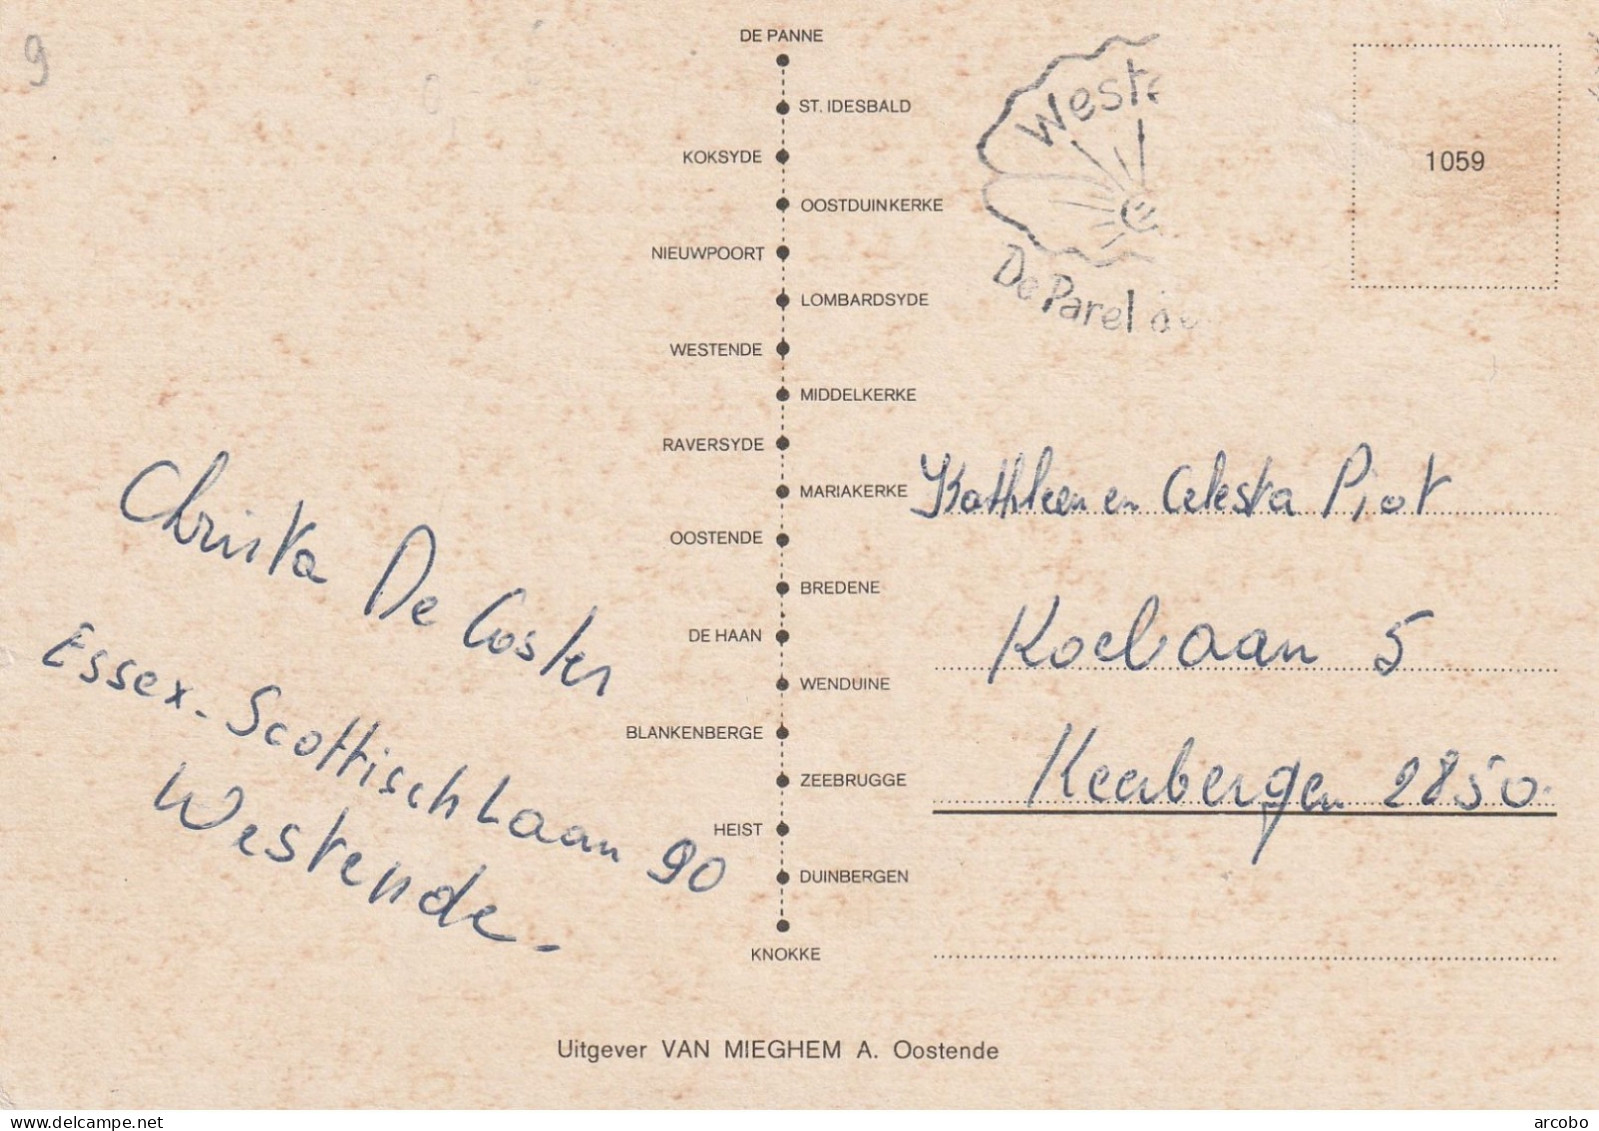 9
DE PANNE
ST. IDESBALD
KOKSYDE
OOSTDUINKERKE
NIEUWPOORT
LOMBARDSYDE
WESTENDE
MIDDELKERKE
RAVERSYDE
MARIAKERKE
OOSTENDE
BREDENE
DE HAAN
WENDUINE
BLANKENBERGE
ZEEBRUGGE
HEIST
DUINBERGEN
KNOKKE
Christa De Coster
Essex-Scottischlaan 90
Westende.
Weste
De Parel de
1059
Kathleen en Celesta Piot
5
Keerbergen 2850.
Uitgever VAN MIEGHEM A. Oostende
delcampe.net
arcobo